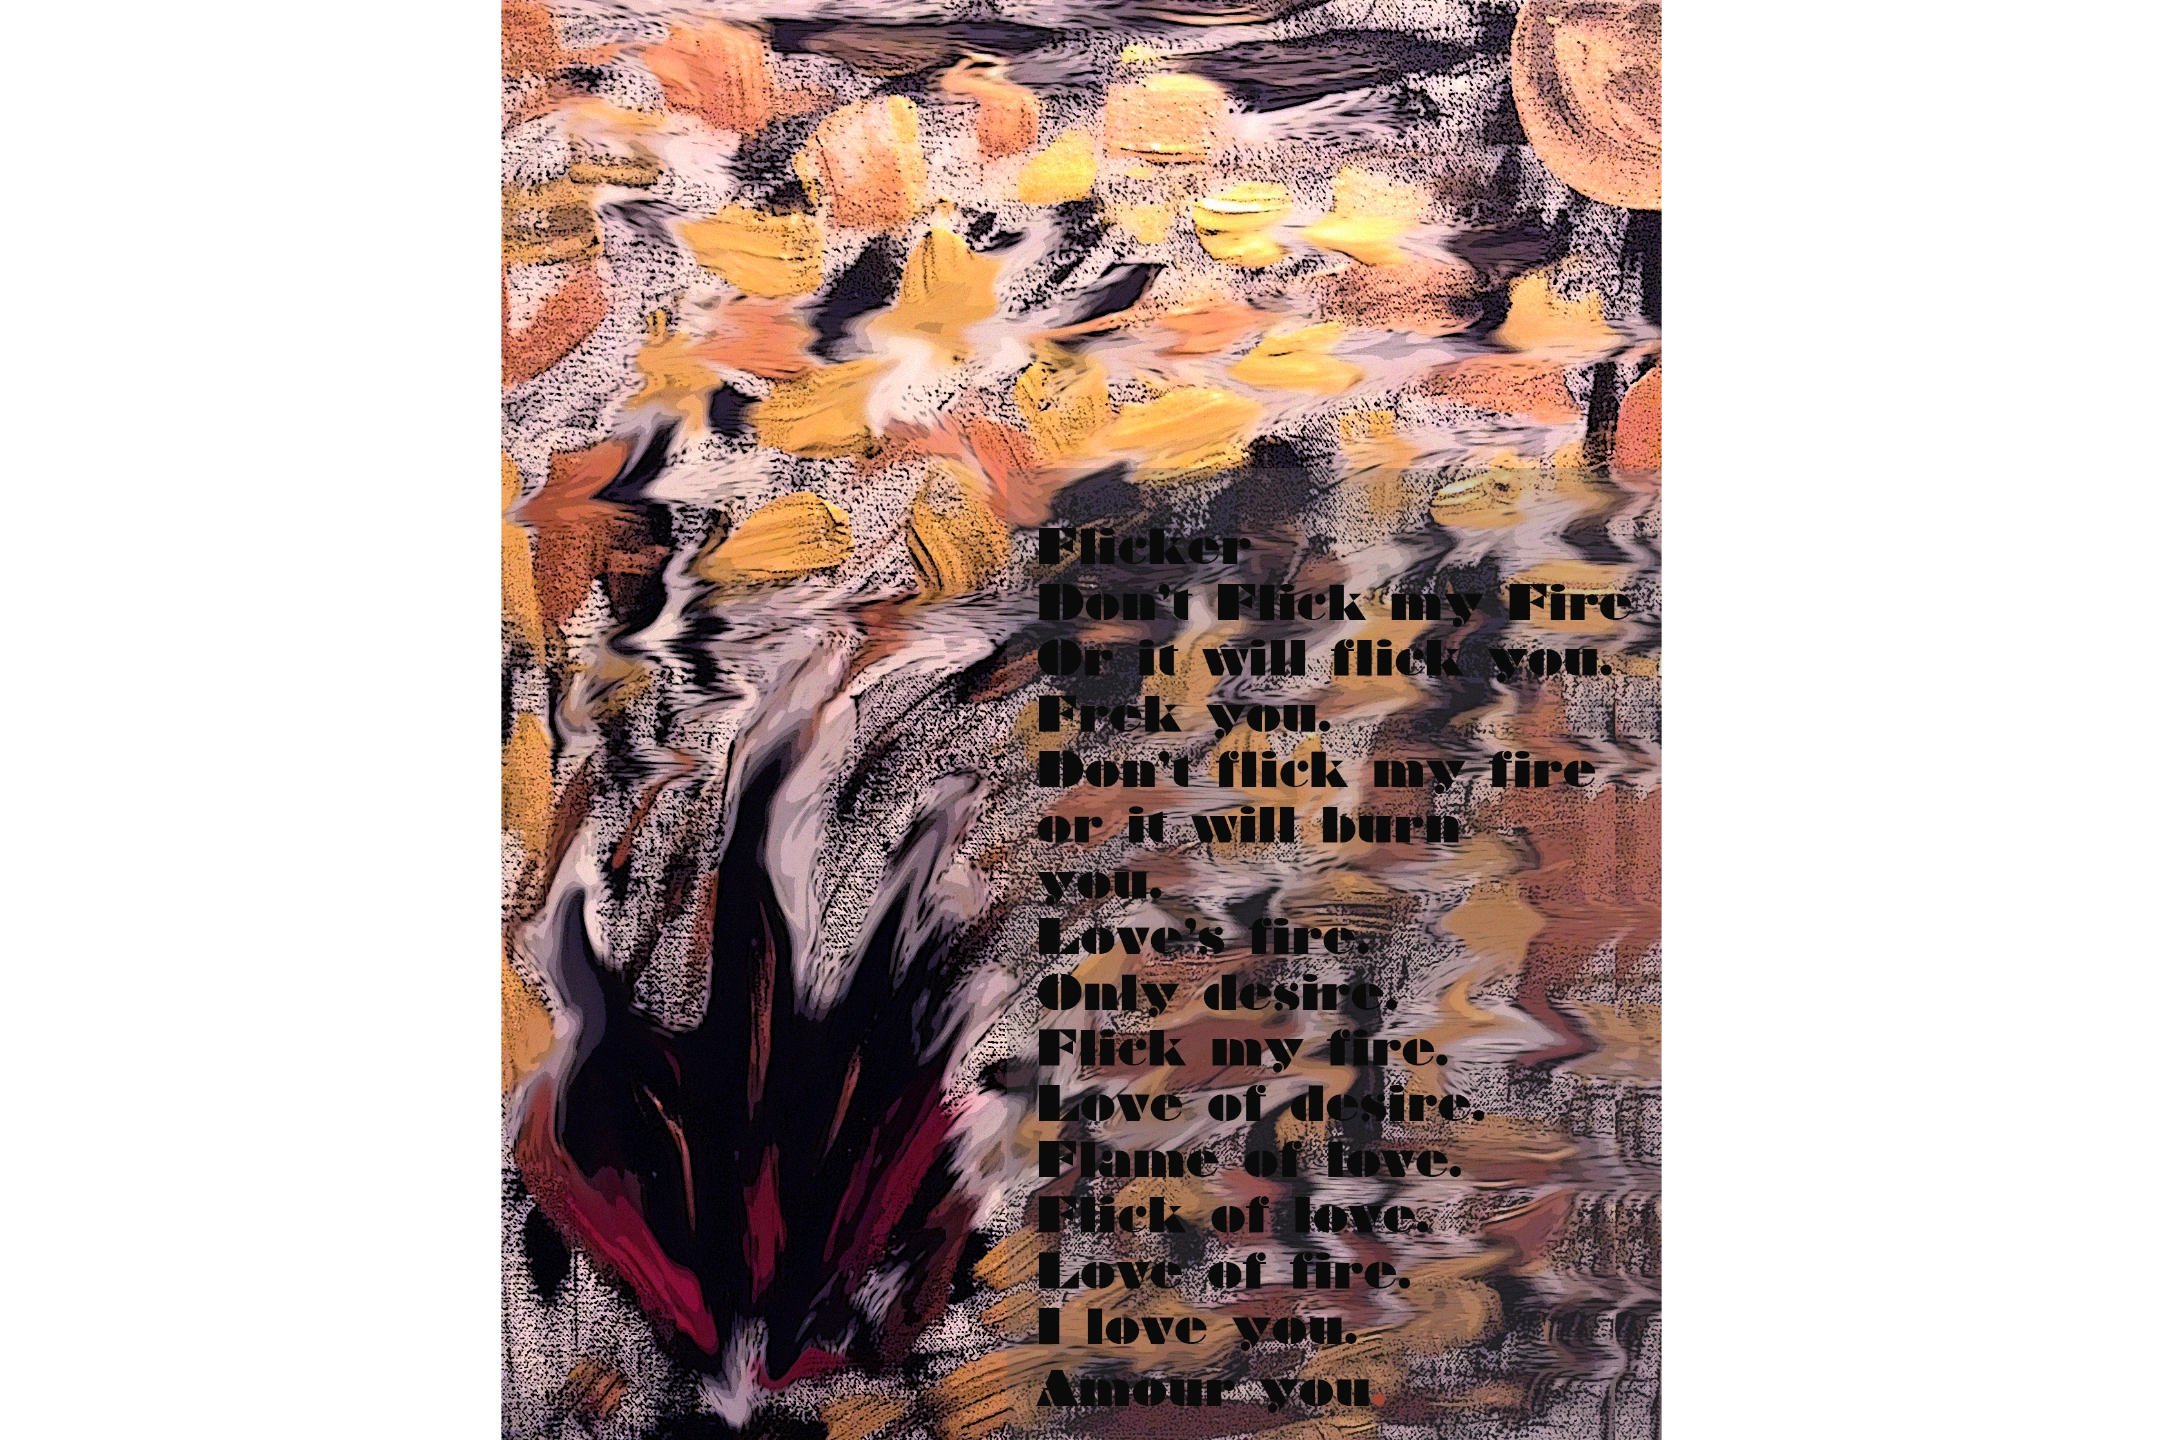 Flicker
Don't Flick my Fire
Or it will flick you.
Frek you.
Don't flick my fire
or it will burn
you.
Love's fire.
Only desire.
Flick my fire.
Love of desire.
Flame of love.
Flick of love.
Love of fire.
I love you.
Amour you.